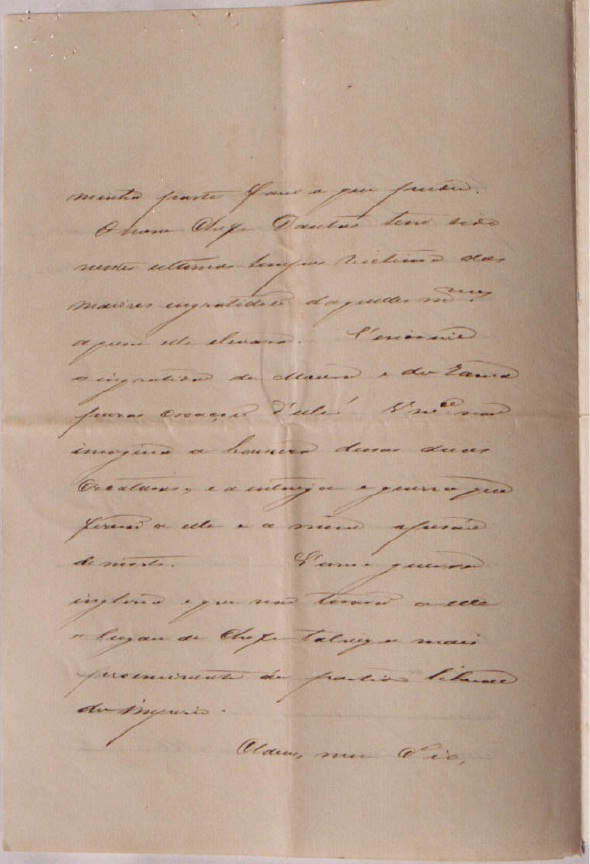 minha parte farei o que puder.
O nosso Chefe Dantas tem sido
nestes ultimos tempos victima das
maiores ingratidões d'aquelles mesmos
a quem elle elevara. E' enorme
a ingratidão de Moura e do
para o coração d'elle! Vmce não
imagina a dessas duas
Creaturas, e a intriga e guerra que
fizerão a elle e a mim
de morte. E' uma guerra
ingloria e que não tirará a elle
o lugar de Chefe talvez o mais
proeminente do partido liberal
do Imperio.
Adeus, meu Pio,